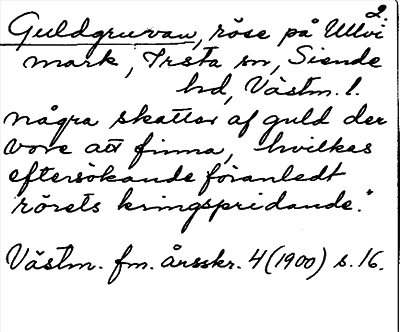 2.
Guldgruvan, röse på Ullvi
mark, Irsta sn, Siende
hd, Västm. l.
några skatter af guld der
vore att finna, hvilkas
eftersökande föranledt
rörets kringspridande."
Västm. fm. årsskr. 4 (1900) s. 16.